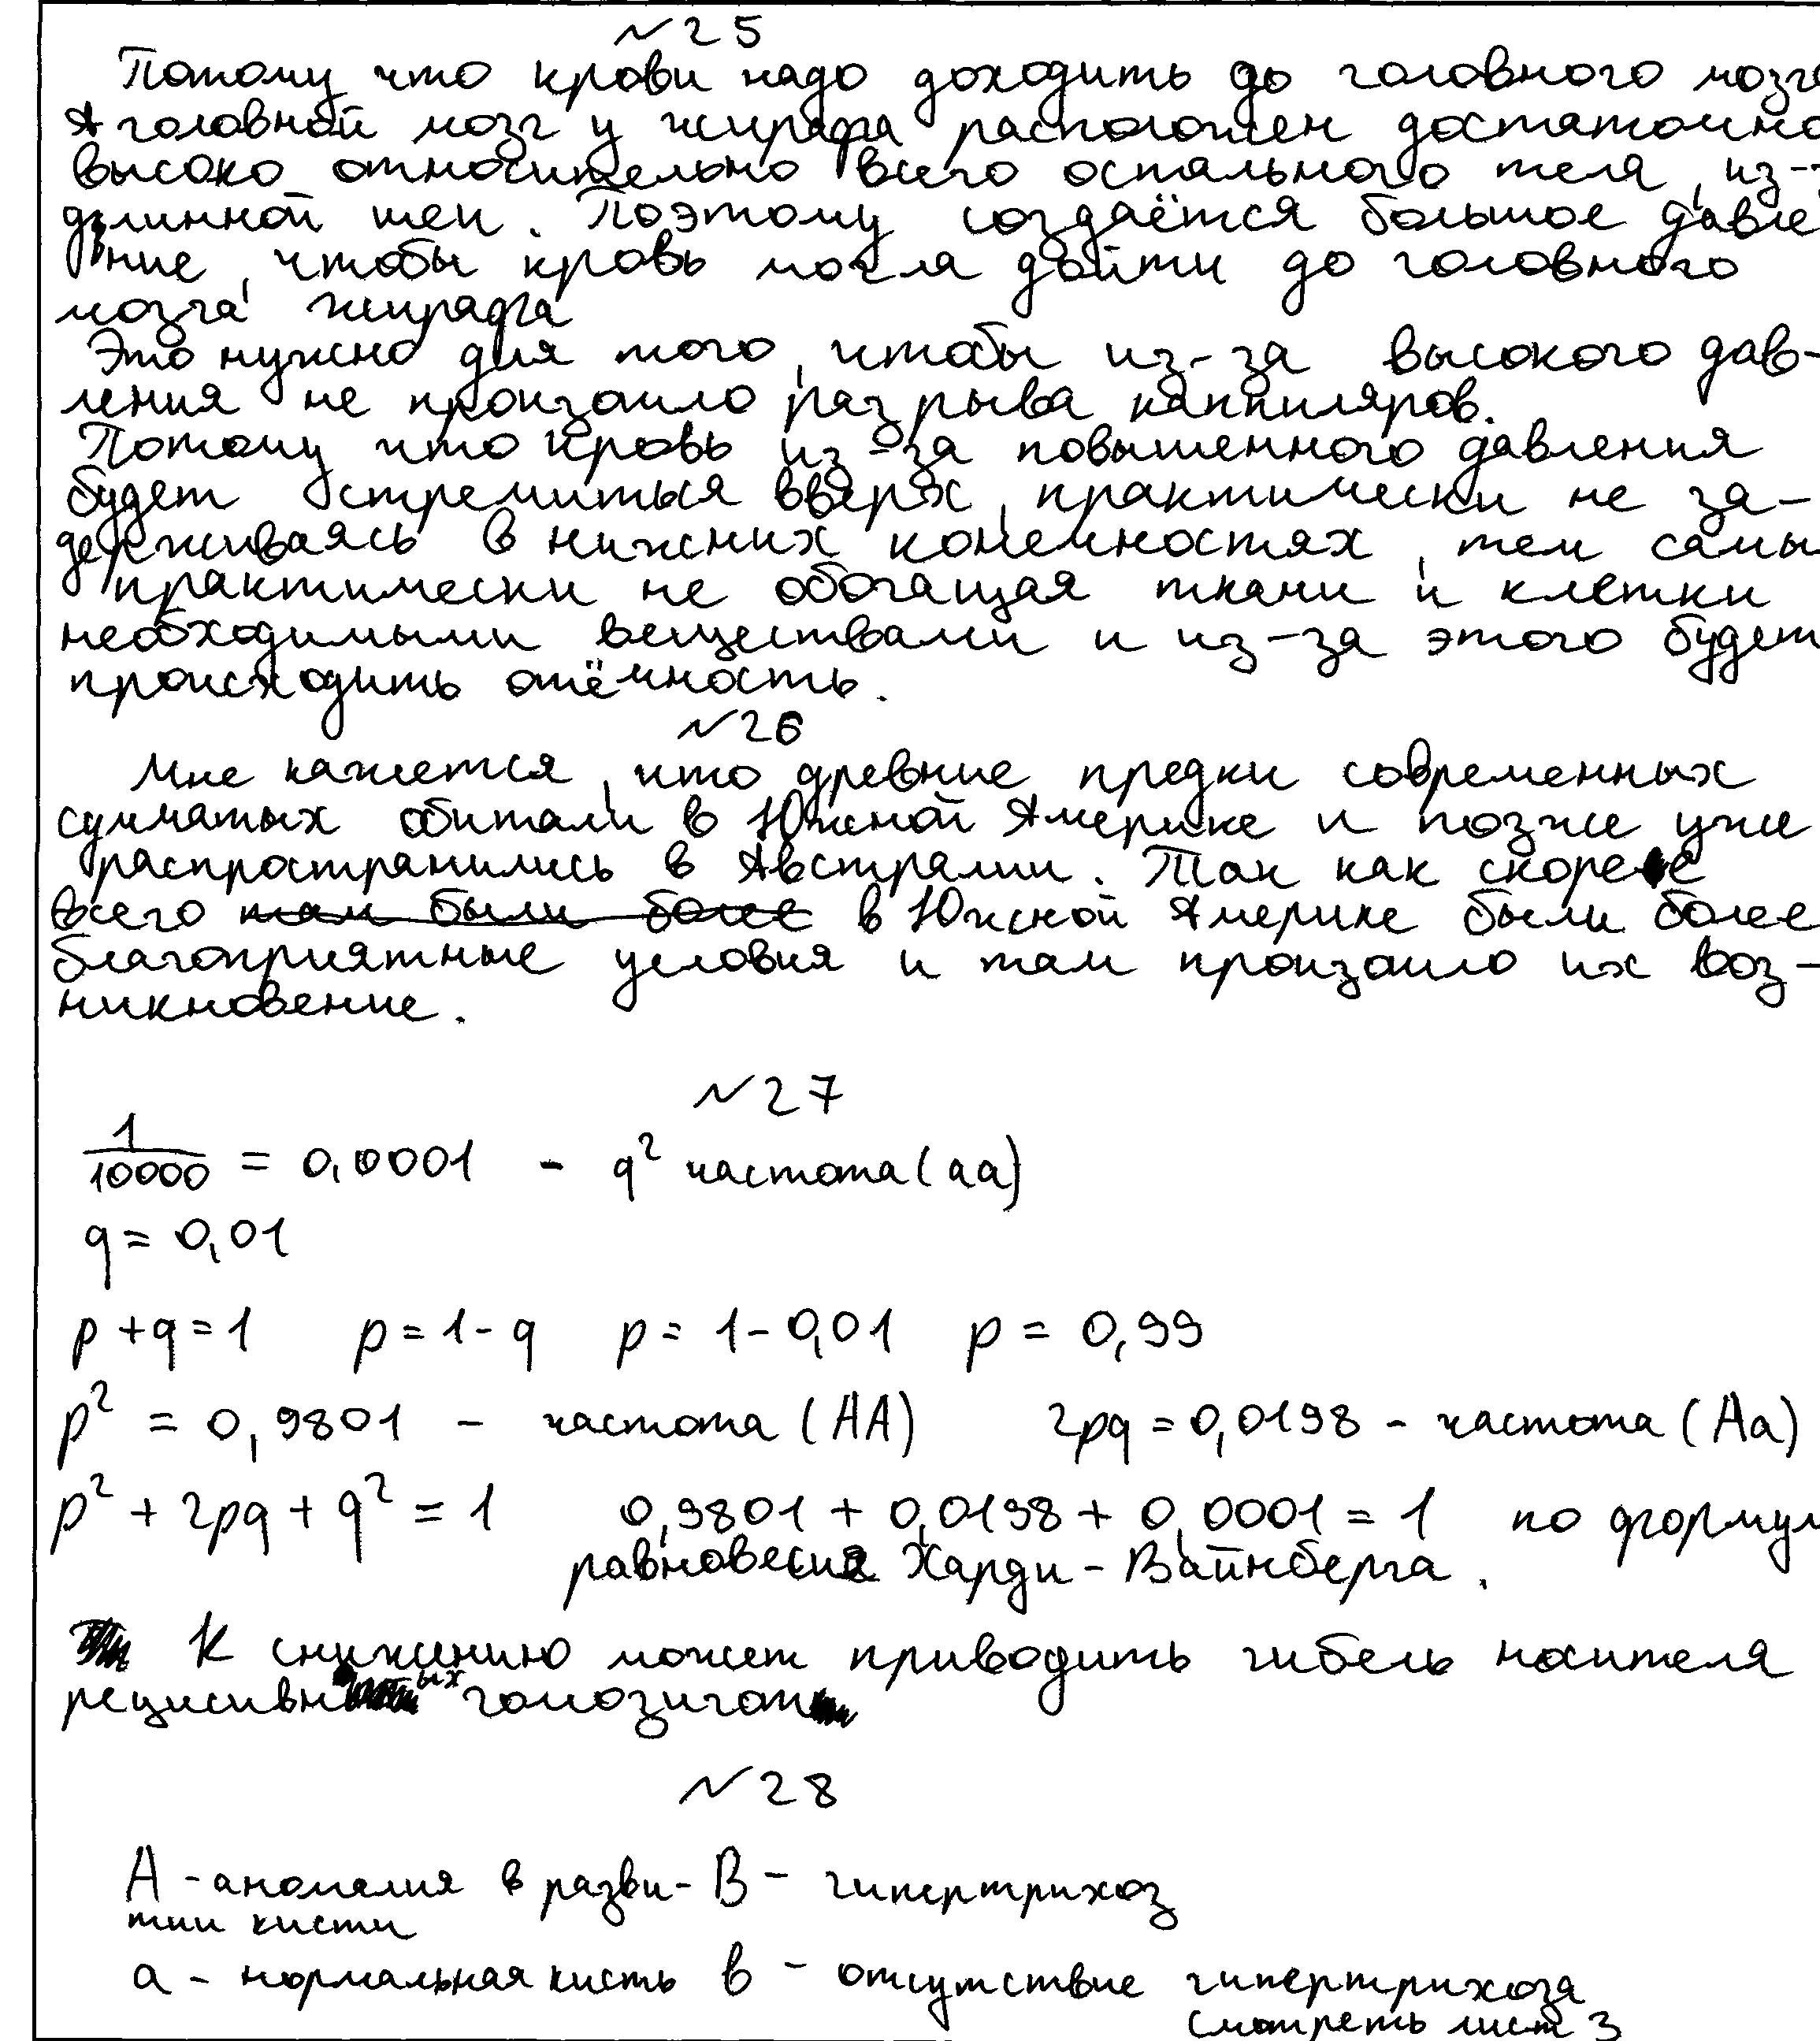 №25
Потому что крови надо доходить до головного мозга
А головной мозг у жирафа расположен достаточно
высоко относительно всего остального тела, из-з
длинной шеи. Поэтому создаётся большое давле
ние, чтобы кровь могла дойти до головного
мозга жирафа
Это нужно для того, чтобы из-за высокого дав-
ления не произошло разрыва каппиляров.
Потому что кровь из-за повышенного давления
будет стремиться вверх, практически не за-
держиваясь в нижних конечностях, тем самы
практически не обогащая ткани и клетки
необходимыми веществами и из-за этого будет
происходить отёчность.
№26
Мне кажется, что древние предки современных
сумчатых обитали в Южной Америке и позже уже
распространились в Австралии. Так как скорее
всего там были более в Южной Америке были более
благоприятные условия и там произошло их воз-
никновение.
№27
1/10000 = 0,0001 - q² частота (аа)
q = 0,01
p + q = 1 p = 1 - q p = 1 - 0,01 p = 0,99
p² = 0,9801 - частота (АА) 2pq = 0,0198 - частота (Аа)
p² + 2pq + q² = 1 0,9801 + 0,0198 + 0,0001 = 1 по формул
равновесия Харди - Вайнберга.
К снижению может приводить гибель носителя
рецисивных гомозигот
№28
А - аномалия в разви- В - гипертрихоз
тии кисти
а - нормальная кисть в - отсутствие гипертрихоза
смотреть лист 3